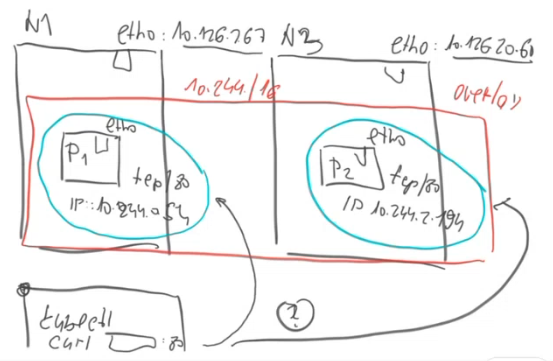 N1
etho: 10.126.767
N2
etho: 10.12620.60
10.244./16
overlay
etho
P1
tcp/80
IP: 10.244.0.54
etho
P2
tcp/80
IP 10.244.2.194
kubectl
curl :80
?